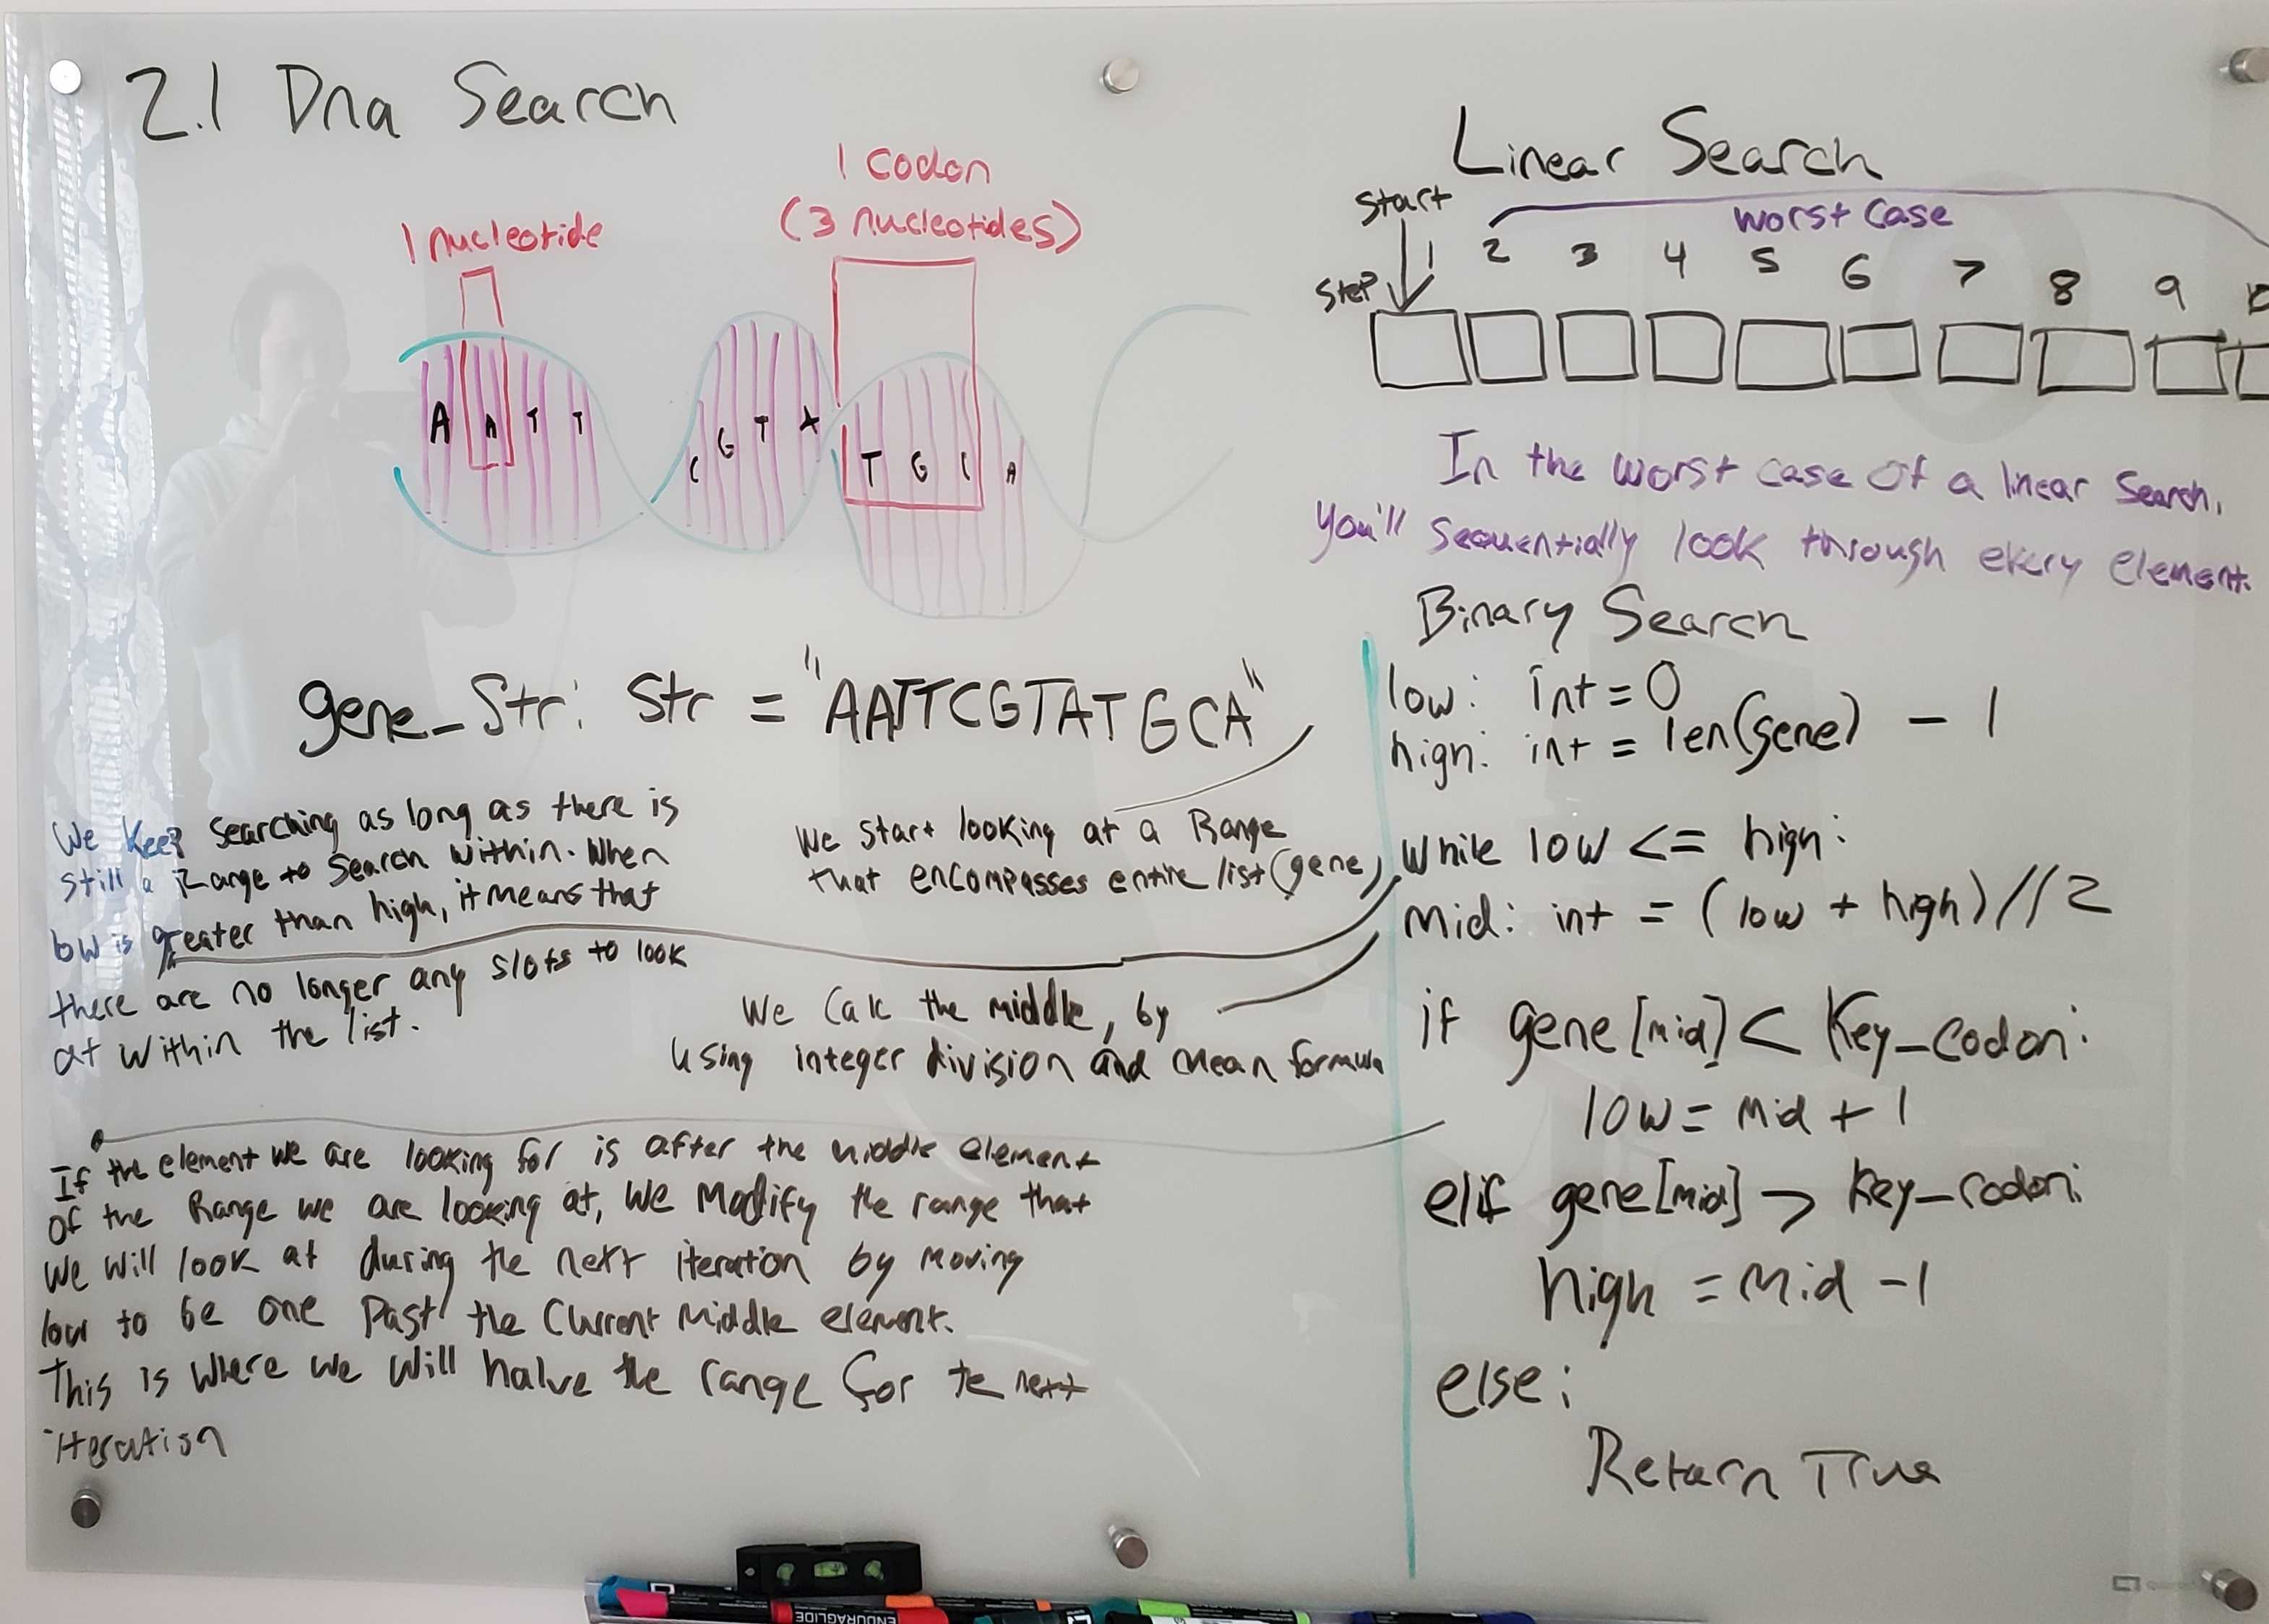 2.1 Dna Search
1 nucleotide
1 Codon
(3 nucleotides)
A A T T C G T A T G C A
gene_Str: Str = "AATTCGTATGCA"
We Keep Searching as long as there is
still a Range to Search within. When
low is greater than high, it means that
there are no longer any slots to look
at within the list.
We start looking at a Range
that encompasses entire list (gene)
We Calc the middle, by
Using integer division and mean formula
If the element we are looking for is after the middle element
Of the Range we are looking at, We Modify the range that
We will look at during the next iteration by moving
low to be one Past the Current Middle element.
This is Where we will halve the range for te next
iteration
Linear Search
Start
Worst Case
Step 1 2 3 4 5 6 7 8 9 10
In the worst case Of a linear Search,
You'll Sequentially look through every element.
Binary Search
low: int = 0
high: int = len(gene) - 1
While low <= high:
Mid: int = (low + high)//2
if gene[mid] < Key_Codon:
low = Mid + 1
elif gene[mid] > Key_codon:
high = Mid - 1
else:
Return True
ENDURAGLIDE